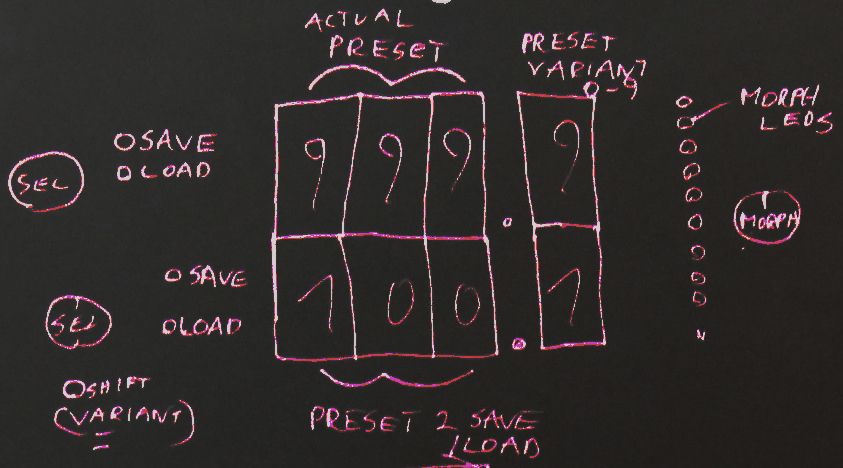 ACTUAL
PRESET
PRESET
VARIANT
0-9
MORPH
LEDS
SAVE
LOAD
SEL
9 9 9 . 9
MORPH
SAVE
LOAD
SEL
1 0 0 . 1
SHIFT
(VARIANT)
PRESET 2 SAVE
/LOAD